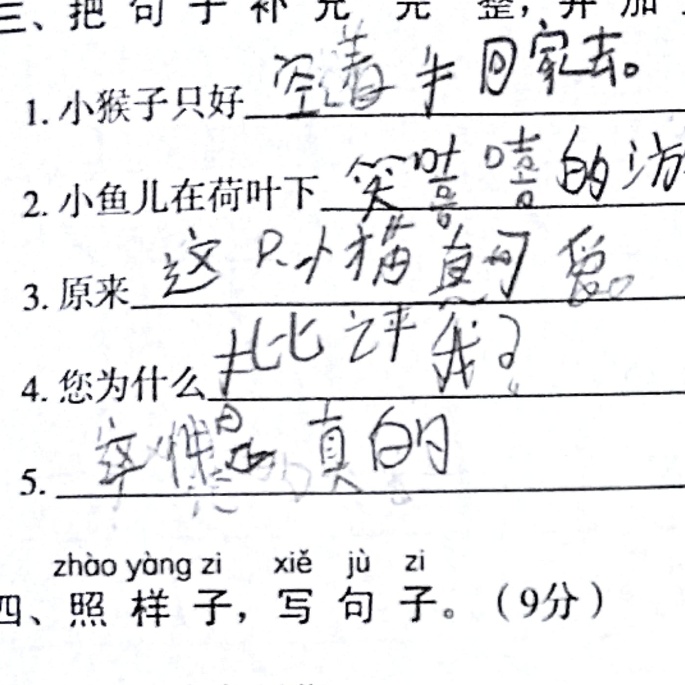 三、把句子补充完整，并加
1. 小猴子只好空着手回家去。
2. 小鱼儿在荷叶下笑嘻嘻的游
3. 原来这只小猫真可爱。
4. 您为什么批评我？
5. 是真的
zhào yàng zi xiě jù zi
四、照样子，写句子。（9分）